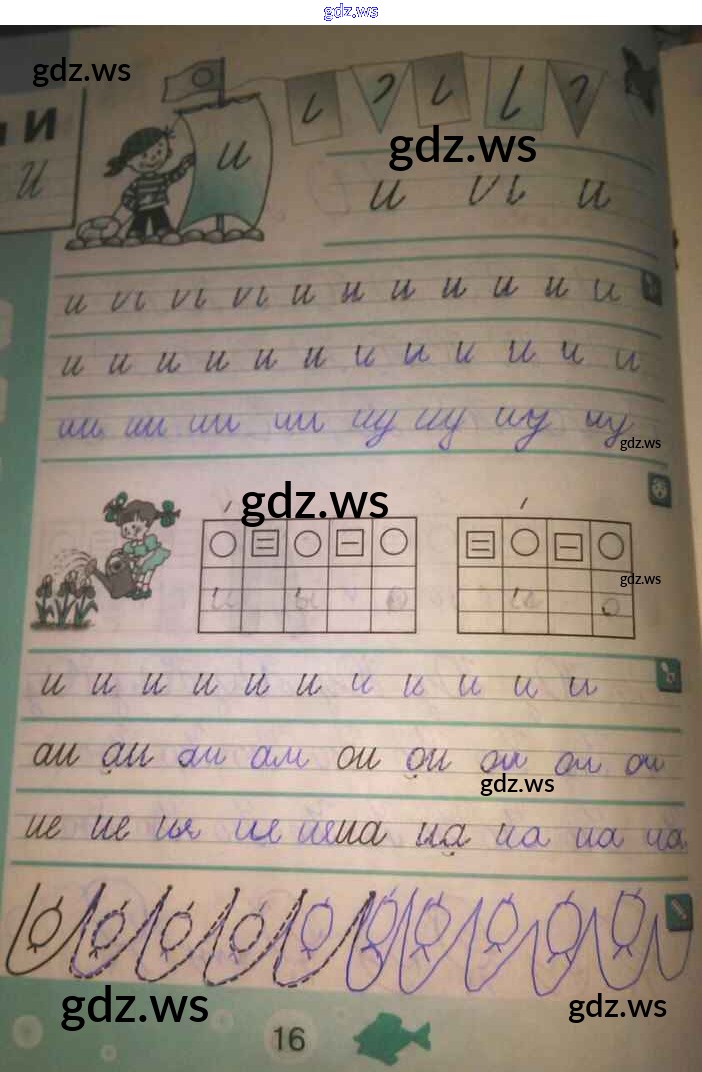 gdz.ws
gdz.ws
и И
И
и
gdz.ws
и и и
и и и и и и и и и и и
и и и и и и и и и и и и
ии ии ии ии иу иу иу иу
gdz.ws
gdz.ws
gdz.ws
и ы о
и о
и и и и и и и и и и и
аи аи аи аи ои ои ои ои ои
gdz.ws
ие ие ие ие ие иа иа иа иа иа
gdz.ws
gdz.ws
16